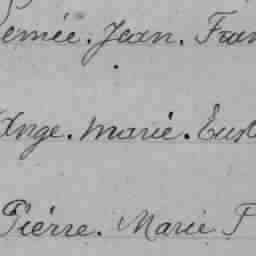 emée. Jean. Fran
Ange. Marie. Eust
Piérre. Marie F